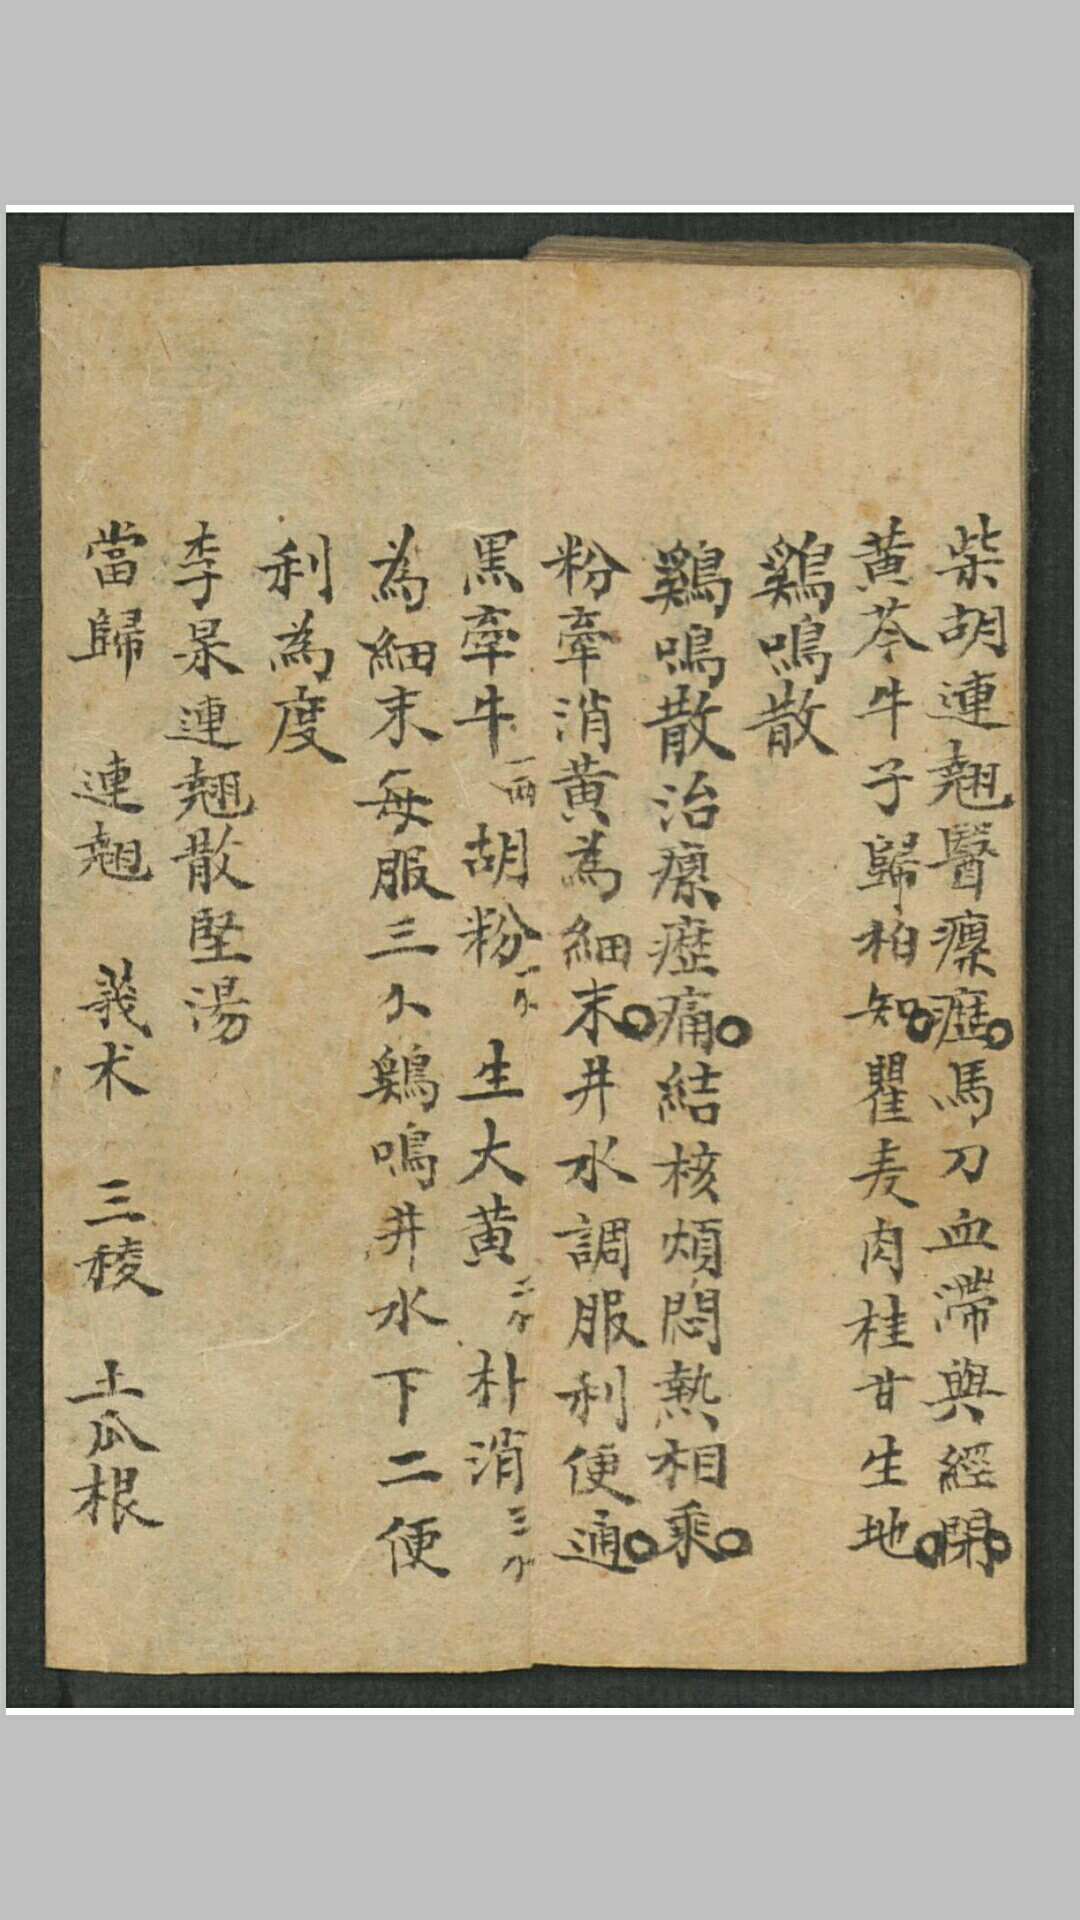 柴胡連翹醫瘰癧馬刀血滯與經閉
黃芩牛子歸柏知瞿麦肉桂甘生地
鷄鳴散
鷄鳴散治瘰癧痛結核煩悶熱相乘
粉牽消黃為細末井水調服利便通
黑牽牛一两胡粉一不生大黃二不朴消三不
為細末每服三个鷄鳴井水下二便
利為度
李杲連翹散堅湯
當歸 連翹 莪朮 三稜 土瓜根